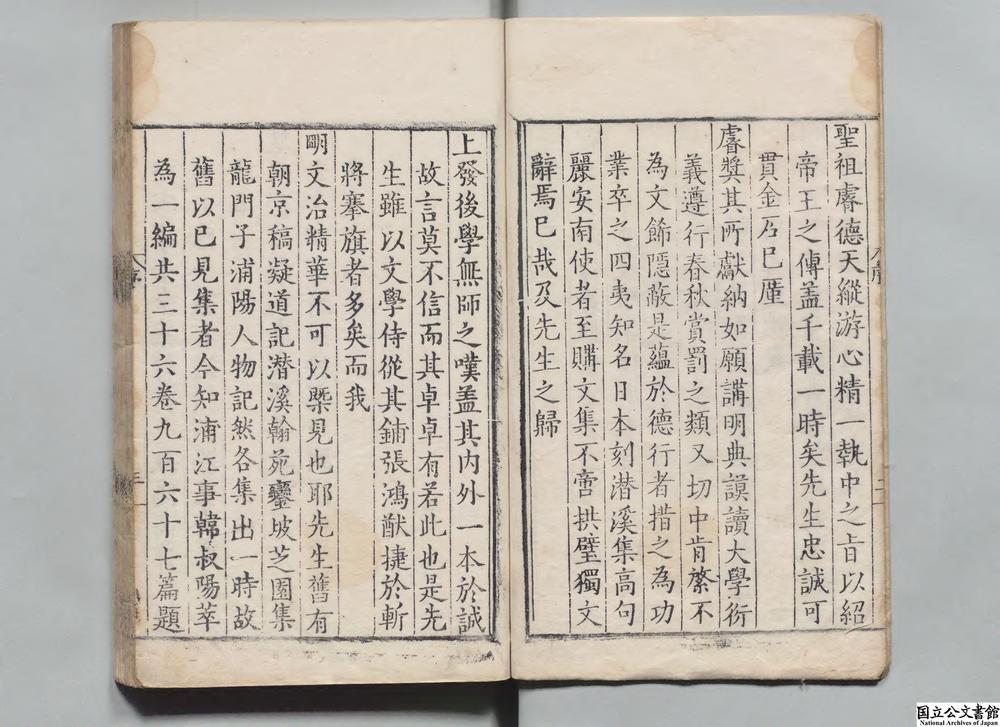 聖祖睿德天縱游心精一執中之㫖以紹
帝王之傳盖千載一時矣先生忠誠可
貫金石已厪
睿奬其所獻納如願講明典謨讀大學衍
義遵行春秋賞罰之類又切中肯綮不
為文飾隱蔽是蘊於德行者措之為功
業卒之四夷知名日本刻潛溪集高句
麗安南使者至購文集不啻拱璧獨文
辭焉已哉及先生之歸
上發後學無師之嘆盖其內外一本於誠
故言莫不信而其卓卓有若此也是先
生雖以文學侍從其鋪張鴻猷捷於斬
將搴旗者多矣而我
朙文治精華不可以槩見也耶先生舊有
朝京稿凝道記潛溪翰苑鑾坡芝園集
龍門子浦陽人物記然各集出一時故
舊以已見集者今知浦江事韓叔陽萃
為一編共三十六卷九百六十七篇題
国立公文書館
National Archives of Japan